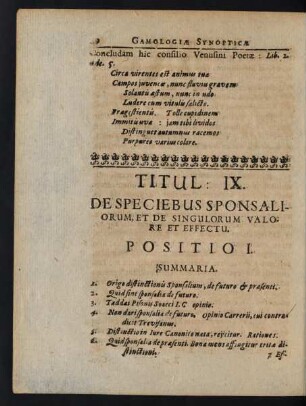 GAMOLOGIÆ SYNOPTICÆ
Concludam hic consilio Venusini Poetæ: Lib. 2.
ode. 5.
Circa virentes est animus tuæ
Campos juvencæ, nunc fluviis gravem
Solantis æstum, nunc in udo
Ludere cum vitulis salicto.
Prægestientis. Tolle cupidinem
Immitis uvæ: jam tibi lividos
Distinguet autumnus racemos
Purpureo varius colore.
TITUL: IX.
DE SPECIEBUS SPONSALI-
ORUM, ET DE SINGULORUM VALO-
RE ET EFFECTU.
POSITIO I.
SUMMARIA.
1. Origo distinctionis Sponsalium, de futuro & præsenti.
2. Quid sint sponsalia de futuro.
3. Taddæi Pisonis Soacci I.C. opinio.
4. Non dari sponsalia de futuro, opinio Carrerii, cui contra-
dicit Trevisanus.
5. Distinctio in Jure Canonico nata, rejicitur. Rationes.
6. Quid sponsalia de præsenti. Bonæ mens assignatur critæ di-
stinctioni.
7 Ef-